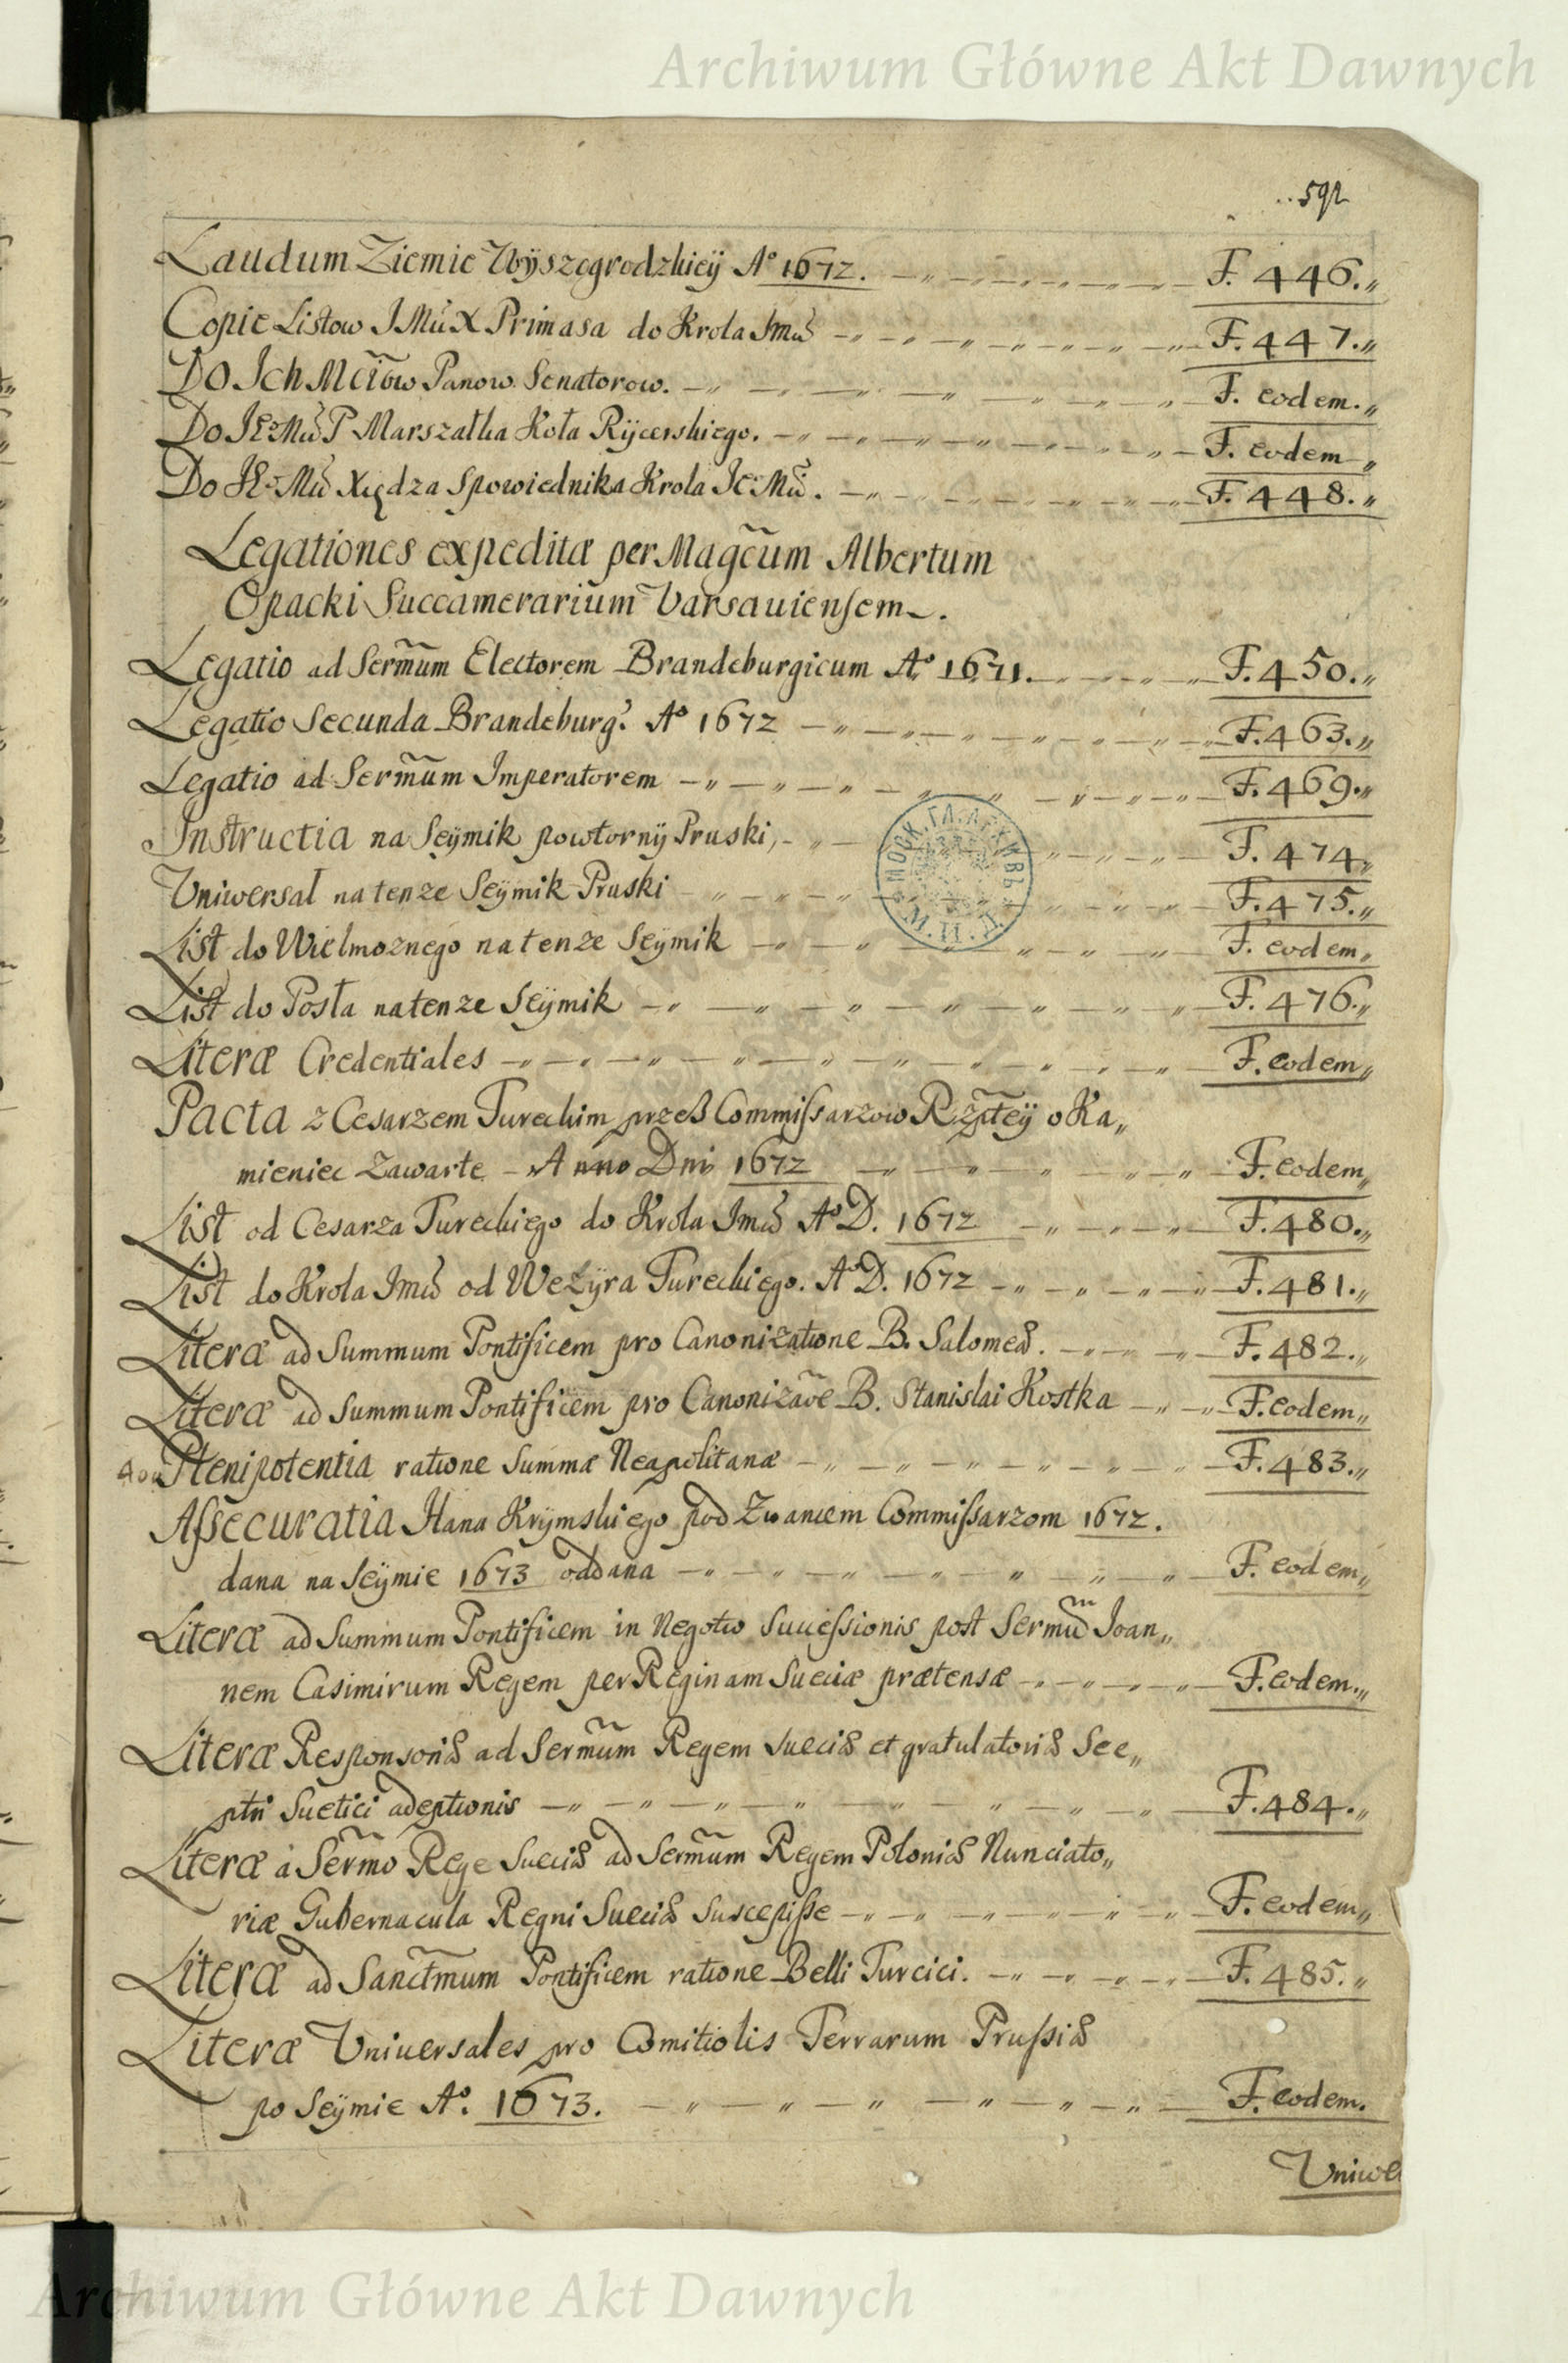 Archiwum Główne Akt Dawnych
592
Laudum Ziemie Wÿszogrodzkieÿ A° 1672. F. 446.
Copie Listow J Mu X Primasa do Krola Jmu F. 447.
Do Jch Mciow Panow Senatorow. F. eodem.
Do JE Mu P Marszałka Koła Rÿcerskiego. F. eodem
Do JE Mu Xiędza Spowiednika Krola Je Mu. F. 448.
Legationes expeditæ per Magcum Albertum
Opacki Succamerarium Varsauiensem.
Legatio ad Sermum Electorem Brandeburgicum A° 1671. F. 450.
Legatio Secunda Brandeburg. A° 1672 F. 463.
Legatio ad Sermum Imperatorem F. 469.
Instructia na Seÿmik powtornÿ Pruski, F. 474
Vniwersał na tenze Seÿmik Pruski F. 475.
List do Wielmoznego na tenze Seÿmik F. eodem
List do Posła na tenze Seÿmik F. 476.
Literæ Credentiales F. eodem
Pacta z Cesarzem Tureckim przeß Commissarzow Rzptey o Ka„
mieniec Zawarte Anno Dni 1672 F. eodem
List od Cesarza Tureckiego do Krola Jmu A° D. 1672 F. 480.
List do Krola Jmu od Wezÿra Tureckiego. A° D. 1672 F. 481.
Literæ ad Summum Pontificem pro Canonizatione B. Salomeæ. F. 482.
Literæ ad Summum Pontificem pro Canonizaõe B. Stanislai Kostka F. eodem
Plenipotentia ratione Summæ Neapolitanæ F. 483.
Assecuratia Hana Krÿmskiego pod Zwancem Commissarzom 1672.
dana na Seÿmie 1673 oddana F. eodem
Literæ ad Summum Pontificem in Negotio Successionis post Sermum Joan„
nem Casimirum Regem per Reginam Sueciæ prætensæ F. eodem.
Literæ Responsoriæ ad Sermum Regem Sueciæ et gratulatoriæ Sce„
ptri Suetici adeptionis F. 484.
Literæ a Sermo Rege Sueciæ ad Sermum Regem Poloniæ Nunciato„
riæ Gubernacula Regni Sueciæ Suscepisse F. eodem
Literæ ad Sanctmum Pontificem ratione Belli Turcici. F. 485.
Literæ Vniuersales pro Comitiolis Terrarum Prussiæ
po Seÿmie A°. 1673. F. eodem.
Vniwe
Archiwum Główne Akt Dawnych